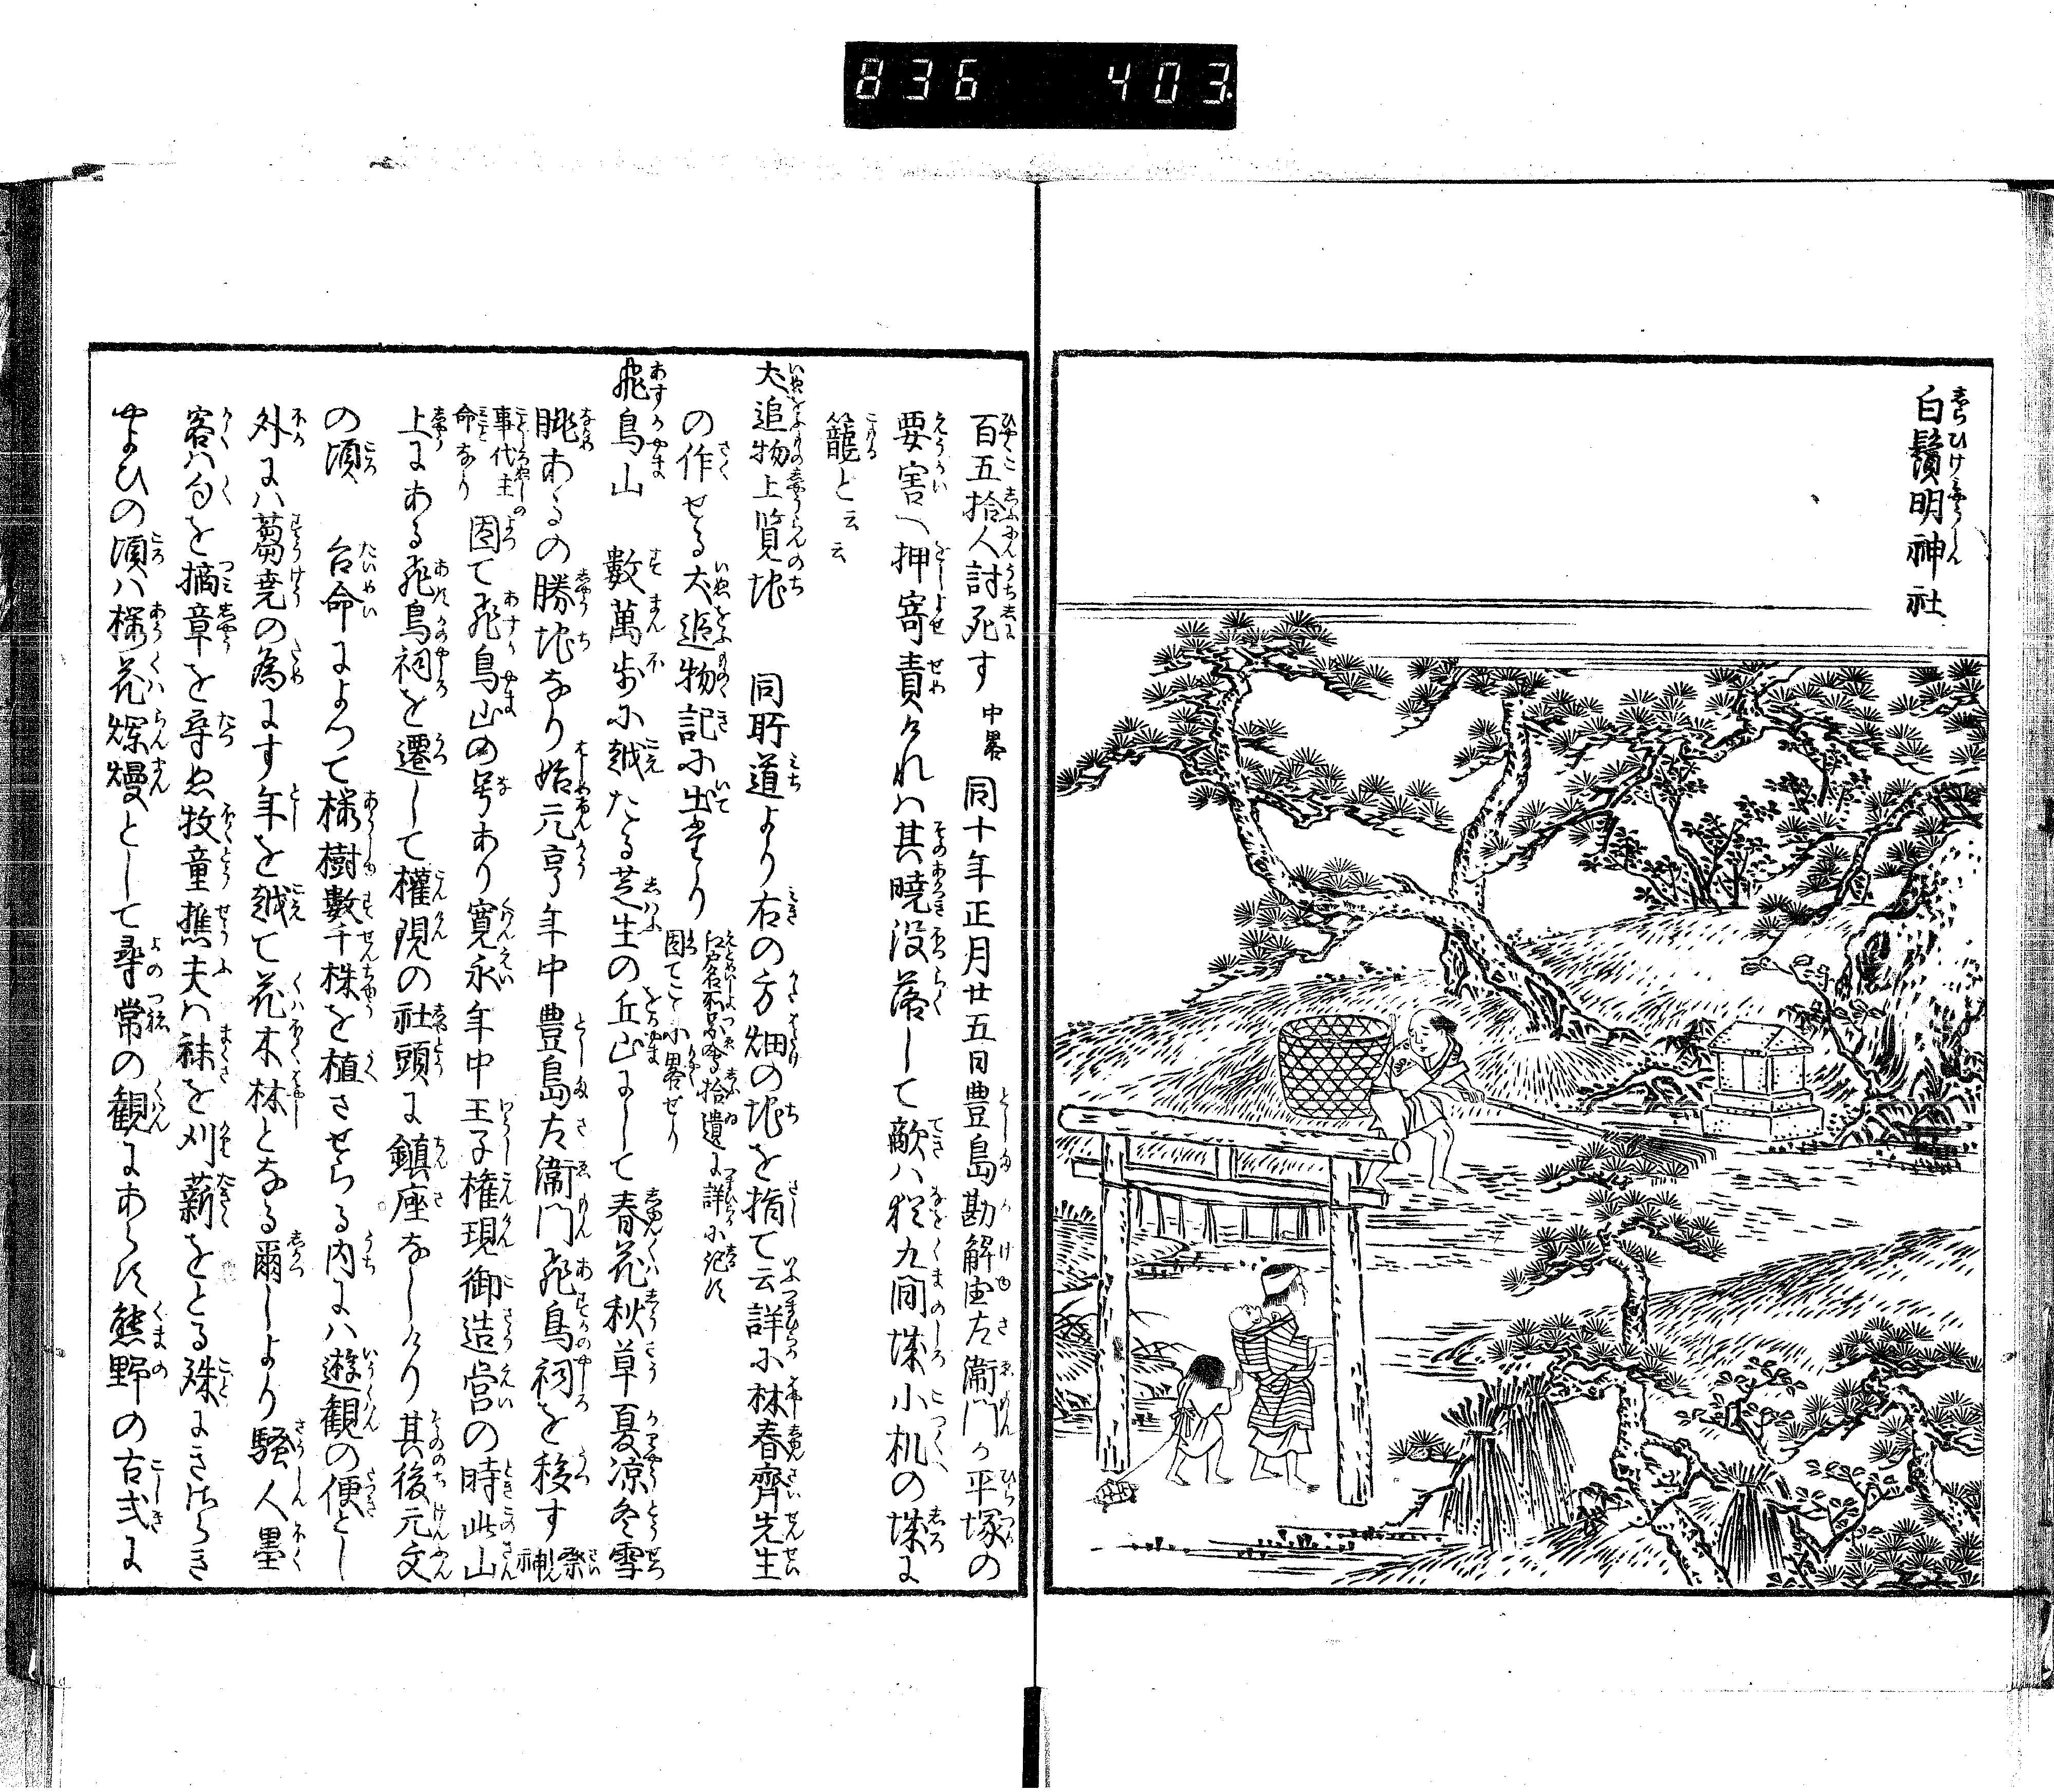 836 403
白鬚明神社
百五拾人討死す 中畧 同十年正月廿五日豊島勘解由左衛門か平塚の
要害へ押寄責けれは其暁没落して敵ハ猶九間城小机の城に
籠と云云
犬追物上覧地 同所道より右の方畑の地を指て云詳に林春齊先生
の作せる犬追物記に出たり 江戸名所図會拾遺に詳に記す
因てこゝに畧せり
飛鳥山 數萬歩に越たる芝生の丘山にして春花秋草夏凉冬雪
眺あるの勝地なり始元亨年中豊島左衛門飛鳥祠を移す 祭神
事代主
命なり 因て飛鳥山の号あり寛永年中王子権現御造営の時此山
上にある飛鳥祠を遷して權現の社頭に鎮座なしけり其後元文
の頃 台命によつて櫻樹數千株を植させらる内には遊観の便とし
外にハ蒭蕘の為にす年を越て花木林となる爾しより騒人墨
客ハ句を摘章を尋ぬ牧童樵夫ハ秣を刈薪をとる殊にきさらき
やよひの頃ハ櫻花爛熳として尋常の観にあらす熊野の古式に